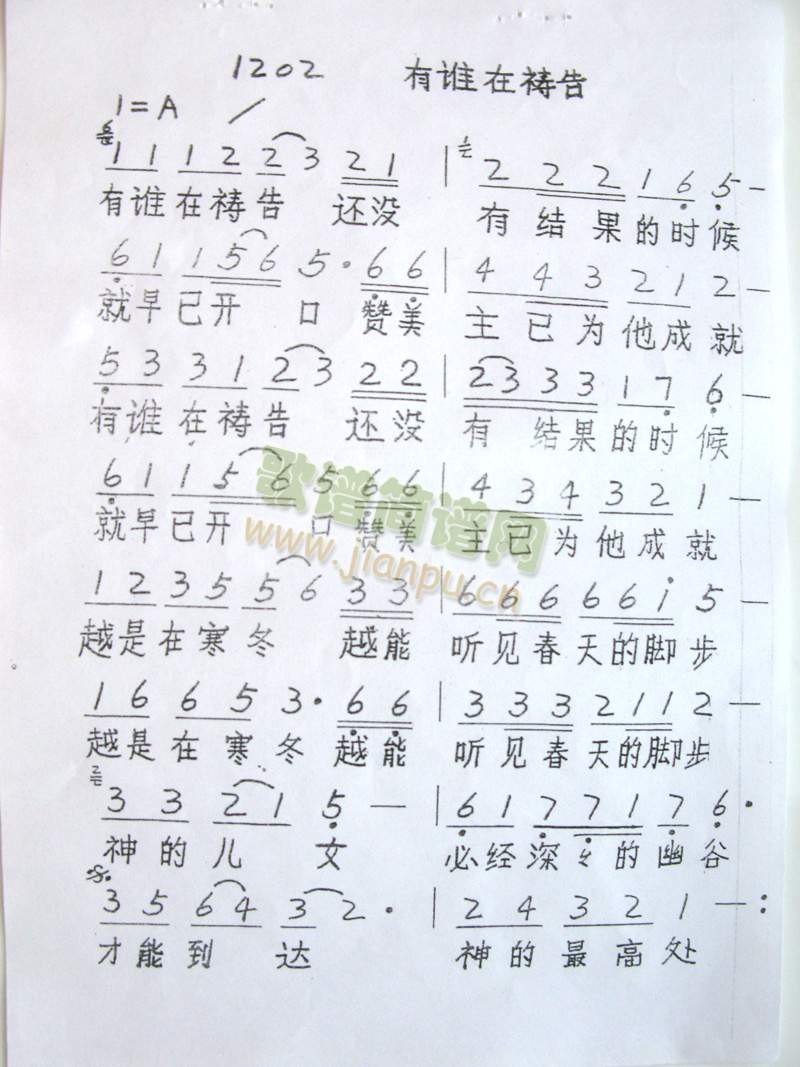 1202 有谁在祷告
1=A
1 1 1 2 2 3 2 1 | 2 2 2 1 6 5 —
有谁在祷告 还没 有结果的时候
6 1 1 5 6 5 · 6 6 | 4 4 3 2 1 2 —
就早已开 口 赞美 主已为他成就
5 3 3 1 2 3 2 2 | 2 3 3 3 1 7 6 —
有谁在祷告 还没 有 结果的时候
6 1 1 5 6 5 6 6 | 4 3 4 3 2 1 —
就早已开 口 赞美 主已为他成就
歌谱简谱网
www.jianpu.cn
1 2 3 5 5 6 3 3 | 6 6 6 6 6 1 5 —
越是在寒冬 越能 听见春天的脚步
1 6 6 5 3 · 6 6 | 3 3 3 2 1 1 2 —
越是在寒冬越能 听见春天的脚步
3 3 2 1 5 — | 6 1 7 7 1 7 6 ·
神的儿 女 必经深 的幽谷
3 5 6 4 3 2 · | 2 4 3 2 1 — :
才能到 达 神的最高处